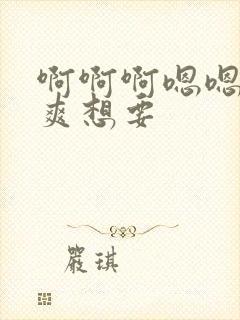 啊啊啊嗯嗯
爽想要
严琪